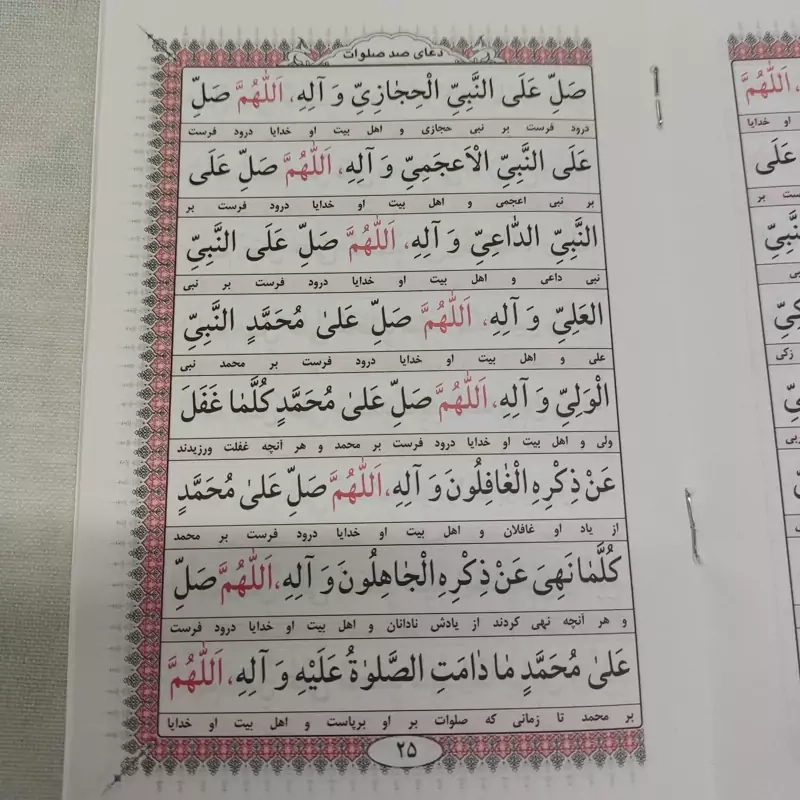 دعای صد صلوات
صَلِّ عَلَی النَّبِیِّ الْحِجٰازِیِّ وَ آلِهِ، اَللّٰهُمَّ صَلِّ
درود فرست بر نبی حجازی و اهل بیت او خدایا درود فرست
عَلَی النَّبِیِّ الْاَعجَمِیِّ وَ آلِهِ، اَللّٰهُمَّ صَلِّ عَلَی
بر نبی اعجمی و اهل بیت او خدایا درود فرست بر
النَّبِیِّ الدّٰاعِیِّ وَ آلِهِ، اَللّٰهُمَّ صَلِّ عَلَی النَّبِیِّ
نبی داعی و اهل بیت او خدایا درود فرست بر نبی
العَلِیِّ وَ آلِهِ، اَللّٰهُمَّ صَلِّ عَلیٰ مُحَمَّدٍ النَّبِیِّ
علی و اهل بیت او خدایا درود فرست بر محمد نبی
الْوَلِیِّ وَ آلِهِ، اَللّٰهُمَّ صَلِّ عَلیٰ مُحَمَّدٍ کُلَّمٰا غَفَلَ
ولی و اهل بیت او خدایا درود فرست بر محمد و هر آنچه غفلت ورزیدند
عَنْ ذِکْرِهِ الْغٰافِلُونَ وَ آلِهِ، اَللّٰهُمَّ صَلِّ عَلیٰ مُحَمَّدٍ
از یاد او غافلان و اهل بیت او خدایا درود فرست بر محمد
کُلَّمٰا نَهیَ عَنْ ذِکْرِهِ الْجٰاهِلُونَ وَ آلِهِ، اَللّٰهُمَّ صَلِّ
و هر آنچه نهی کردند از یادش نادانان و اهل بیت او خدایا درود فرست
عَلیٰ مُحَمَّدٍ مٰا دٰامَتِ الصَّلوٰةُ عَلَیْهِ وَ آلِهِ، اَللّٰهُمَّ
بر محمد تا زمانی که صلوات بر او برپاست و اهل بیت او خدایا
۲۵
اَللّٰهُمَّ
او خدایا
عَلَی
زکی